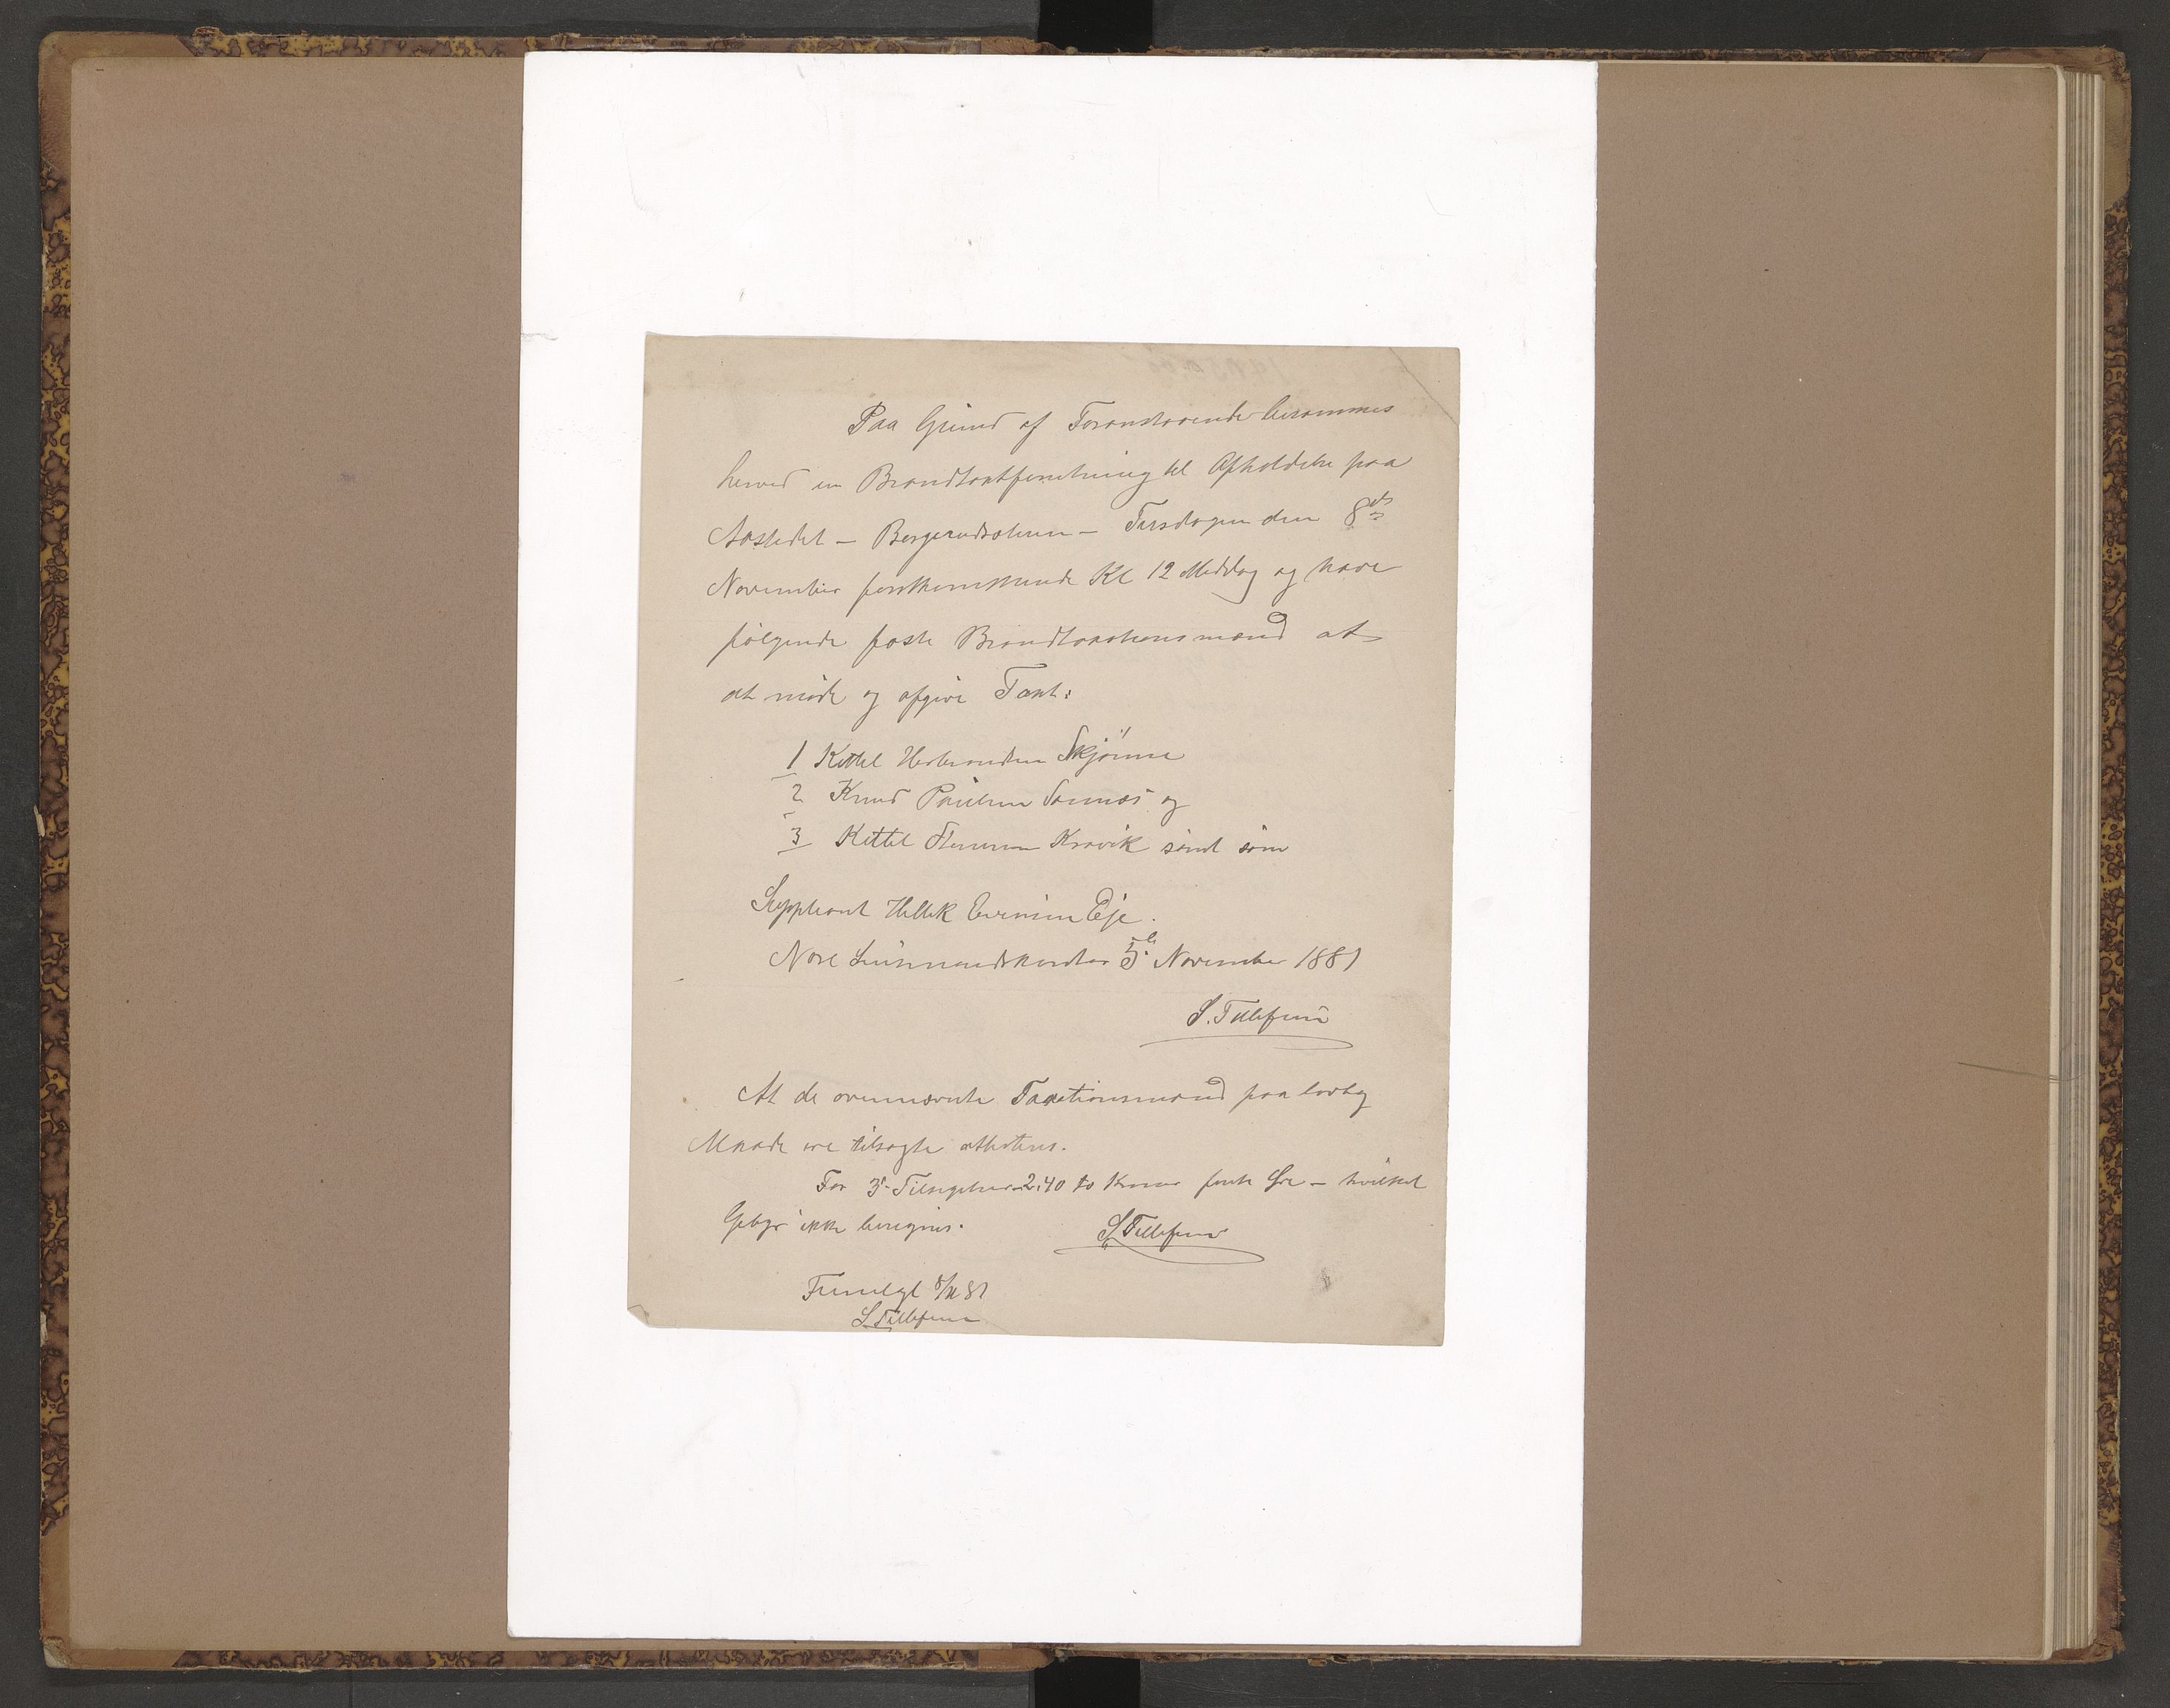 Paa Grund af Foranstaaende berammes
herved en Brandtaxtforretning til Afholdelse paa
Aastedet - Bergerudsateren - Tirsdagen den 8de
November førstkommende Kl 12 Middag og have
følgende faste Brandtaxtionsmænd at
at møde og afgive Taxt:
1 Kittel Herbrandsen Skjønne
2 Knud Paulsen Sønnes og
3 Kittel Stenersen Kravik samt som
Suppleant Hellik Evensen Eje.
Nore Lensmandskontor 5te November 1881
S. Tollefsen
At de ovennævnte Taxtionsmænd paa lovlig
Maade ere tilsagte attesteres.
For 3 Tilsigelser 2.40 to Kroner førti Øre - hvilket
Gebyr ikke beregnes. S. Tollefsen
Fremlagt 8/11 81
S Tollefsen